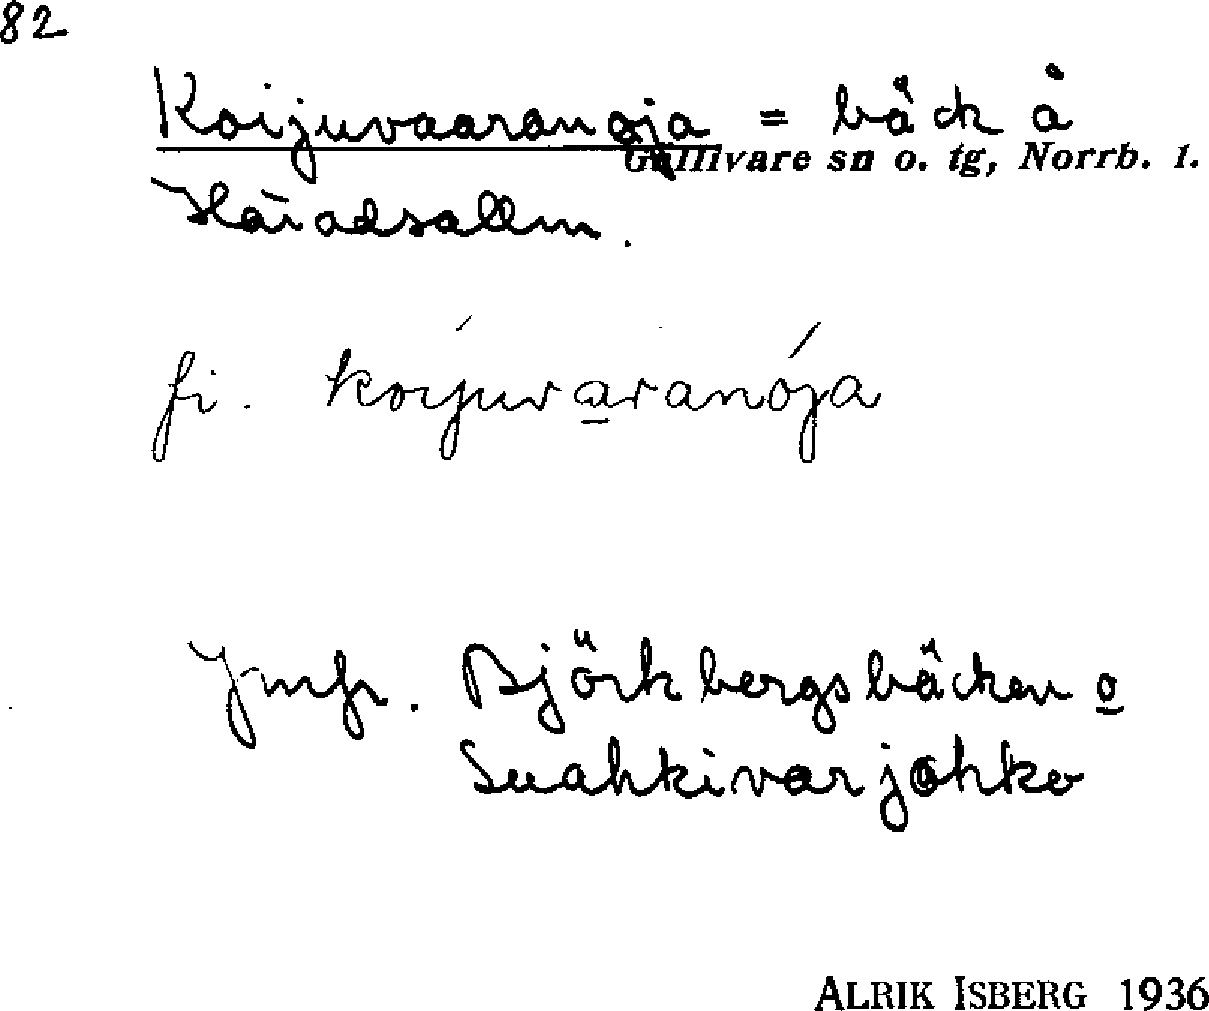 82
Koijuvaaranoja = bäck å
Gällivare sn o. tg, Norrb. l.
Häradsallm.
fi. koijuvaranója
Jmfr. Björkbergsbäcken o
Suahkivarjohko
ALRIK ISBERG 1936